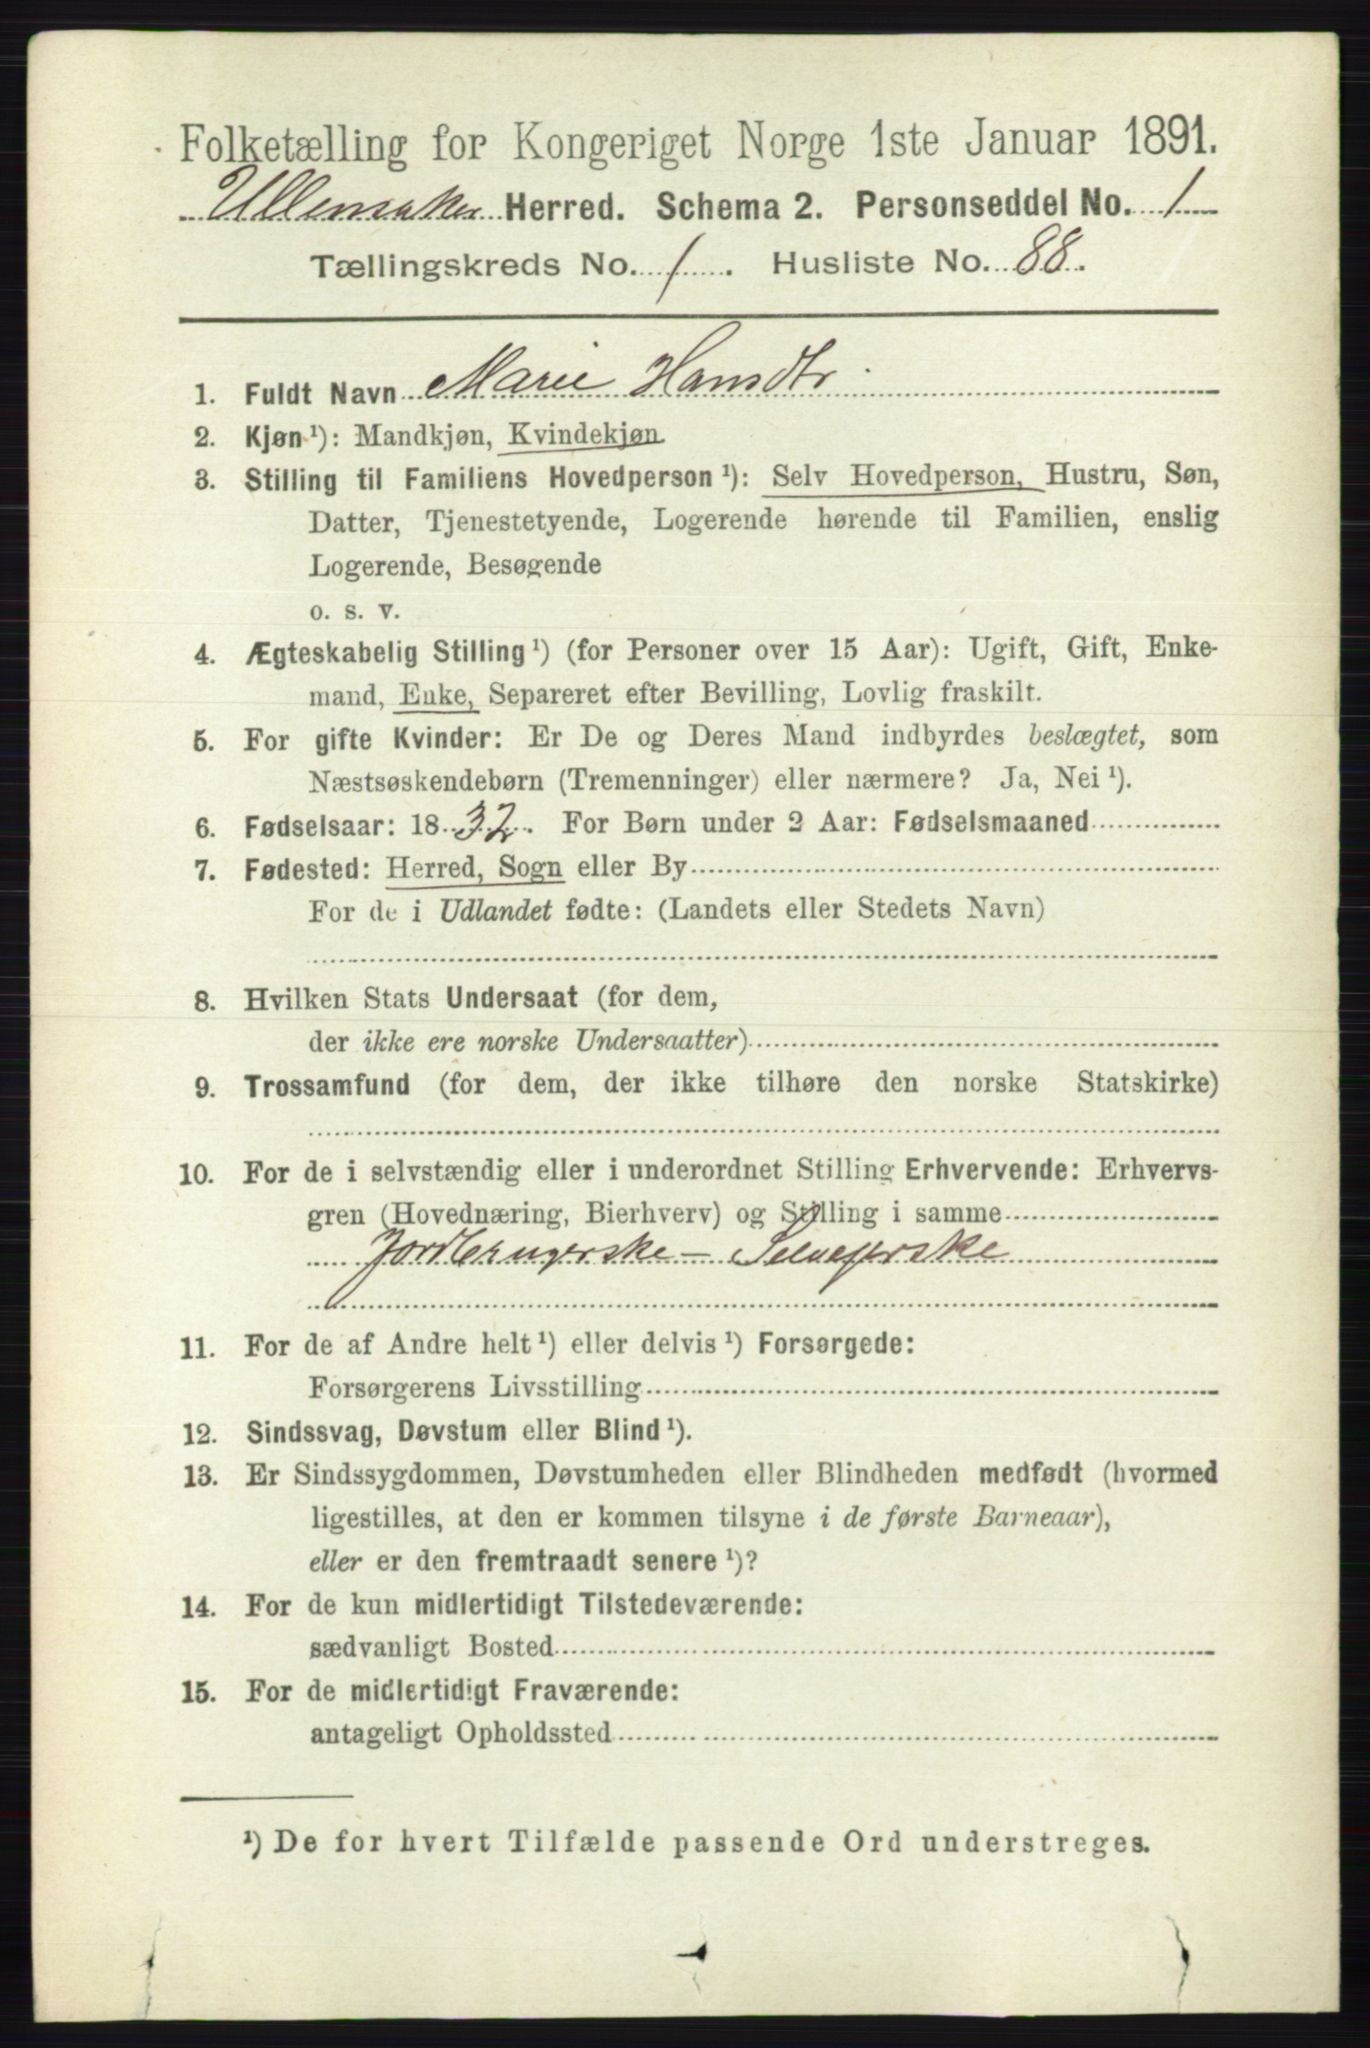 Folketælling for Kongeriget Norge 1ste Januar 1891.
Ullensaker Herred. Schema 2. Personseddel No. 1
Tællingskreds No. 1. Husliste No. 88.
1. Fuldt Navn Marie Hansdtr.
2. Kjøn ¹): Mandkjøn, Kvindekjøn.
3. Stilling til Familiens Hovedperson ¹): Selv Hovedperson, Hustru, Søn,
Datter, Tjenestetyende, Logerende hørende til Familien, enslig
Logerende, Besøgende
o. s. v.
4. Ægteskabelig Stilling ¹) (for Personer over 15 Aar): Ugift, Gift, Enke-
mand, Enke, Separeret efter Bevilling, Lovlig fraskilt.
5. For gifte Kvinder: Er De og Deres Mand indbyrdes beslægtet, som
Næstsøskendebørn (Tremenninger) eller nærmere? Ja, Nei ¹).
6. Fødselsaar: 1832. For Børn under 2 Aar: Fødselsmaaned
7. Fødested: Herred, Sogn eller By
For de i Udlandet fødte: (Landets eller Stedets Navn)
8. Hvilken Stats Undersaat (for dem,
der ikke ere norske Undersaatter)
9. Trossamfund (for dem, der ikke tilhøre den norske Statskirke)
10. For de i selvstændig eller i underordnet Stilling Erhvervende: Erhvervs-
gren (Hovednæring, Bierhverv) og Stilling i samme
Jordbrugerske - Selveierske
11. For de af Andre helt ¹) eller delvis ¹) Forsørgede:
Forsørgerens Livsstilling
12. Sindssvag, Døvstum eller Blind ¹).
13. Er Sindssygdommen, Døvstumheden eller Blindheden medfødt (hvormed
ligestilles, at den er kommen tilsyne i de første Barneaar),
eller er den fremtraadt senere ¹)?
14. For de kun midlertidigt Tilstedeværende:
sædvanligt Bosted
15. For de midlertidigt Fraværende:
antageligt Opholdssted
¹) De for hvert Tilfælde passende Ord understreges.